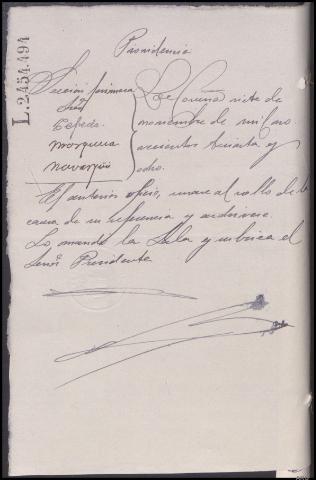 L.2454.494
Providencia
Sección primera
Señ
Cepeda
Mosquera
Navarro
La Coruña siete de
noviembre de mil no
vecientos treinta y
ocho.
El anterior oficio, unase al rollo de la
causa de su referencia y archivese.
Lo mandó la Sala y rubrica el
Señor Presidente